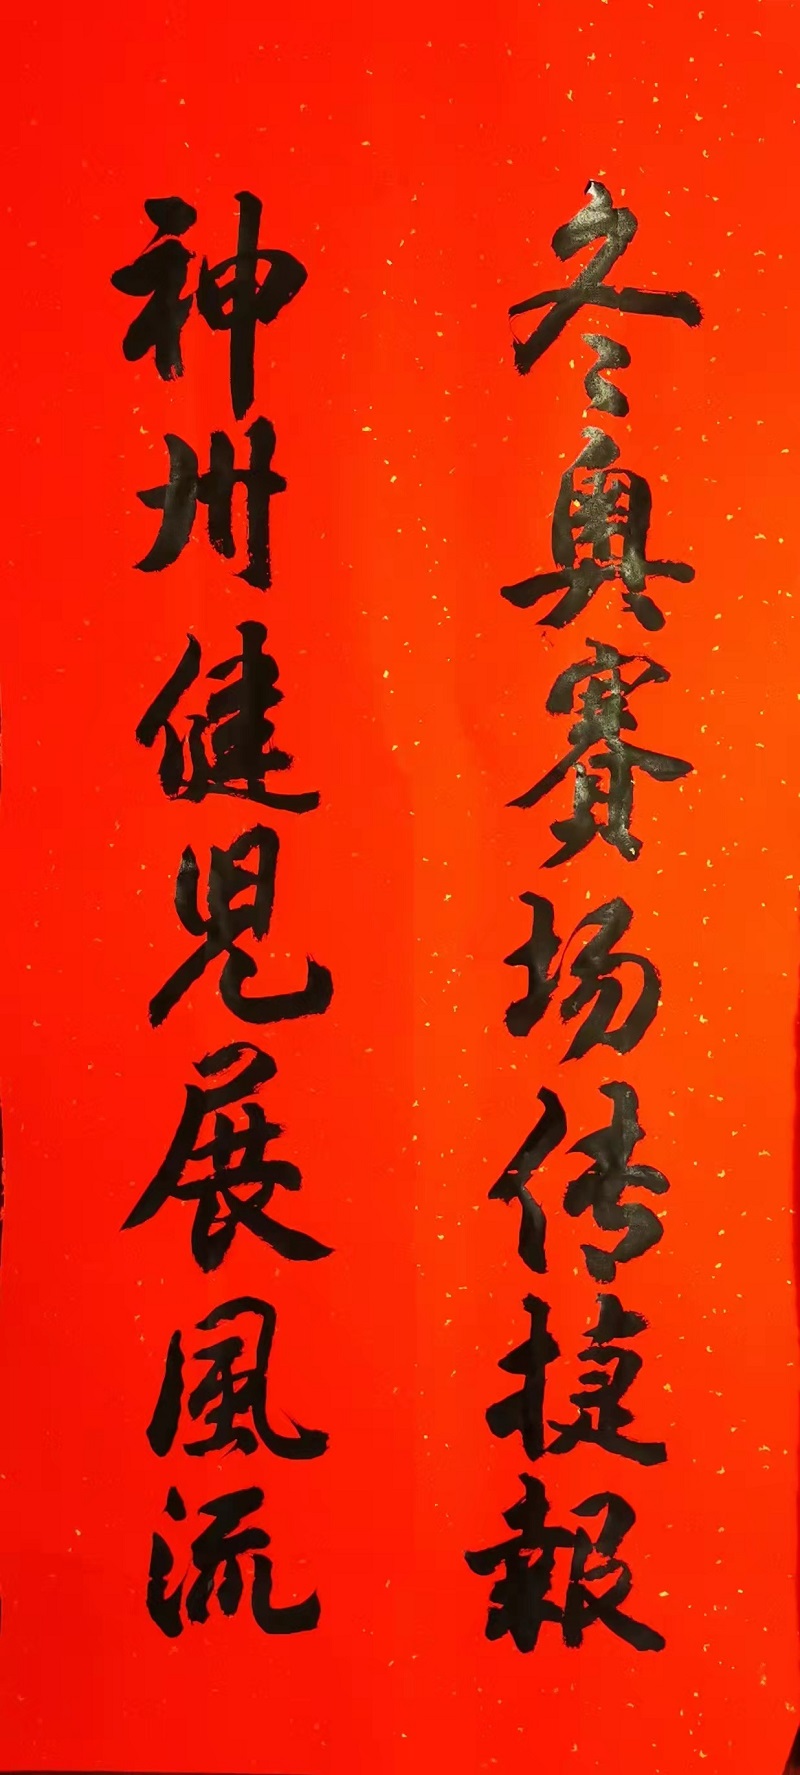 冬奥賽场传捷報
神州健兒展風流